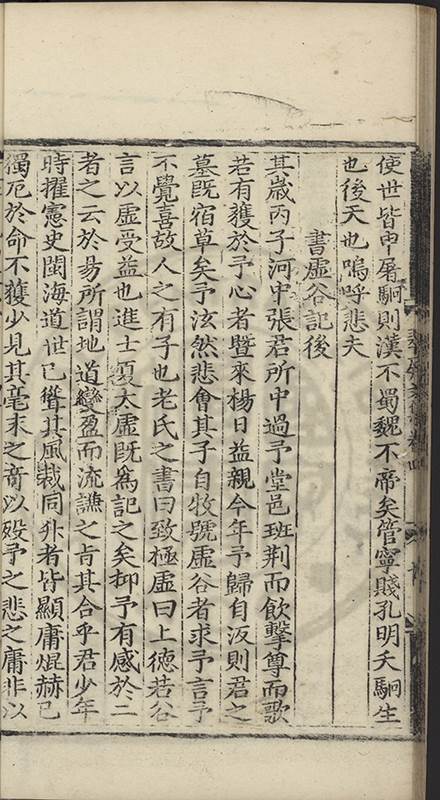 使世皆申屠駉則漢不蜀魏不帝矣管寧賤孔明夭駉生
也後天也嗚呼悲夫
書虛谷記後
其歲丙子河中張君所中過予堂邑班荆而飲擊尊而歌
若有獲於予心者暨來楊日益親今年予歸自汳則君之
墓既宿草矣予泫然悲會其子自牧號虛谷者求予言予
不覺喜故人之有子也老氏之書曰致極虛曰上德若谷
言以虛受益也進士夏太虛既為記之矣抑予有感於二
者之云於昜所謂地道變盈而流謙之肯其合乎君少年
時擢憲史閩海道世已聳其風裁同升者皆顯庸焜赫已
獨厄於命不獲少見其毫末之竒以殁予之悲之庸非以